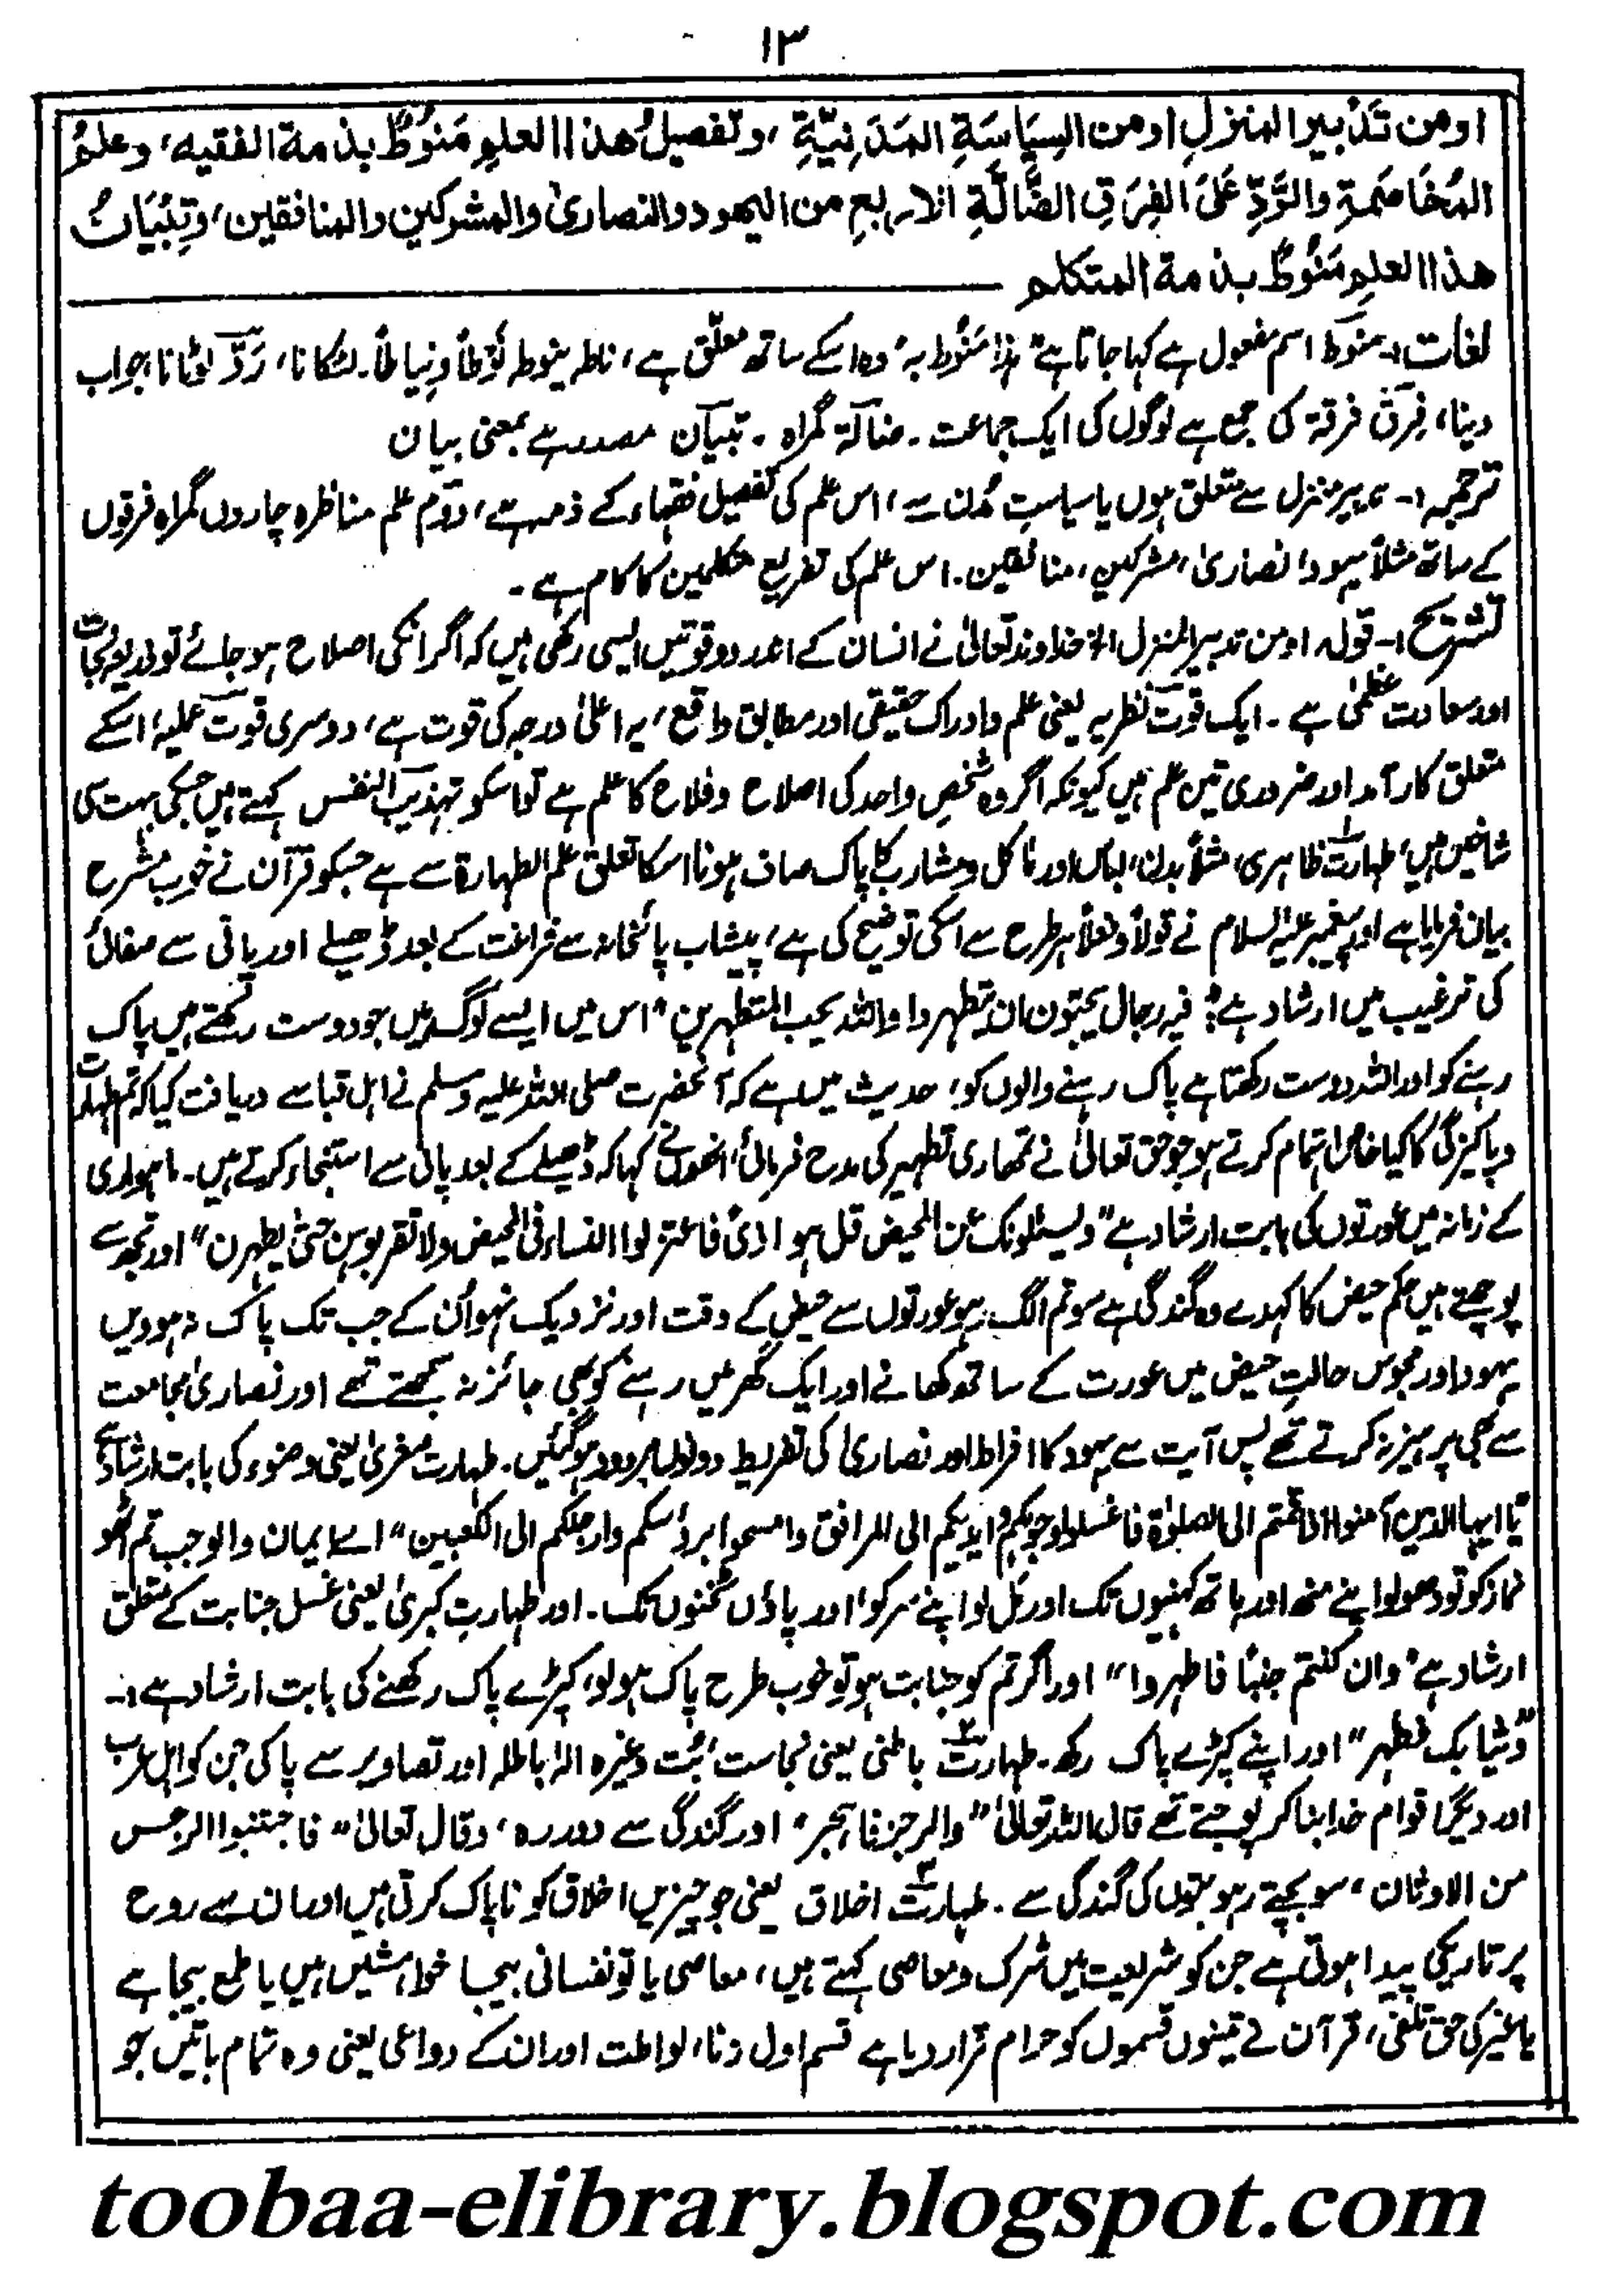 ۱۳
او من تَدْبِیرِ المنزلِ او من السِیَاسَةِ المَدَنِیَّةِ، وتفصیلُ هذا العلمِ مَنُوطٌ بذمة الفقیه، وعلمُ
المُخَاصَمةِ والرَّدِّ عَلَی الفِرَقِ الضَّالَّةِ الاربعِ من الیهود والنصاریٰ والمشرکین والمنافقین، وتِبْیَانُ
هذا العلمِ مَنُوطٌ بذمة المتکلم
لغات:۔ منوط اسم مفعول ہے کہا جاتا ہے "ہذا مَنُوط بہ" وہ اسکے ساتھ معلّق ہے، ناط ینوط نوطاً ونیاطاً۔ لٹکانا، رَدّ لوٹانا، جواب
دینا، فِرَق فرقۃ کی جمع ہے لوگوں کی ایک جماعت۔ ضالّۃ گمراہ۔ تبیان مصدر ہے بمعنی بیان
ترجمہ:۔ تدبیر منزل سے متعلق ہوں یا سیاستِ مُدن سے، اس علم کی تفصیل فقہاء کے ذمہ ہے، دوّم علم مناظرہ چاروں گمراہ فرقوں
کے ساتھ مثلاً یہود، نصاریٰ، مشرکین، منافقین۔ اس علم کی تفریع متکلمین کا کام ہے۔
تشریح:۔ قولہ او من تدبیر المنزل الخ خداوند تعالیٰ نے انسان کے اندر دو قوتیں ایسی رکھی ہیں کہ اگر انکی اصلاح ہو جائے تو ذریعۂ نجات
اور سعادت عظمٰی ہے۔ ایک قوت نظریہ یعنی علم وادراک حقیقی اور مطابق واقع، یہ اعلیٰ درجہ کی قوت ہے، دوسری قوت عملیہ، اسکے
متعلق کارآمد اور ضروری تین علم ہیں کیونکہ اگر وہ شخصِ واحد کی اصلاح وفلاح کا علم ہے تو اسکو تہذیب النفس کہتے ہیں جسکی بہت سی
شاخیں ہیں، طہارت ظاہری، مثلاً بدن، لباس اور ماکل ومشارب کا پاک صاف ہونا اسکا تعلق علم الطہارۃ سے ہے جسکو قرآن نے خوب مشرح
بیان فرمایا ہے اور پیغمبر علیہ السلام نے قولاً وفعلاً ہر طرح سے اسکی توضیح کی ہے، پیشاب پائخانہ سے فراغت کے بعد ڈھیلے اور پانی سے صفائی
کی ترغیب میں ارشاد ہے: "فیہ رجال یحبّون ان یتطہروا واللہ یحب المتطہرین" اس میں ایسے لوگ ہیں جو دوست رکھتے ہیں پاک
رہنے کو اور اللہ دوست رکھتا ہے پاک رہنے والوں کو، حدیث میں ہے کہ آنحضرت صلی اللہ علیہ وسلم نے اہل قبا سے دریافت کیا کہ تم طہارت
وپاکیزگی کا کیا خاص اہتمام کرتے ہو جو حق تعالیٰ نے تمہاری تطہیر کی مدح فرمائی، انھوں نے کہا کہ ڈھیلے کے بعد پانی سے استنجاء کرتے ہیں۔ ماہواری
کے زمانہ میں عورتوں کی بابت ارشاد ہے "ویسئلونک عن المحیض قل ہو اذیً فاعتزلوا النساء فی المحیض ولا تقربوہن حتیٰ یطہرن" اور تجھ سے
پوچھتے ہیں حکم حیض کا کہدے وہ گندگی ہے سو تم الگ رہو عورتوں سے حیض کے وقت اور نزدیک نہو اُن کے جب تک پاک نہ ہوویں
یہود اور مجوس حالتِ حیض میں عورت کے ساتھ کھانے اور ایک گھر میں رہنے کو بھی جائز نہ سمجھتے تھے اور نصاریٰ مجامعت
سے بھی پرہیز نہ کرتے تھے پس آیت سے یہود کا افراط اور نصاریٰ کی تفریط دونوں مردود ہو گئیں۔ طہارت صغریٰ یعنی وضوء کی بابت ارشاد ہے
"یا ایہا الذین آمنوا اذا قمتم الی الصلوٰۃ فاغسلوا وجوہکم وایدیکم الی المرافق وامسحوا برؤسکم وارجلکم الی الکعبین" اے ایمان والو جب تم اٹھو
نماز کو تو دھولو اپنے منھ اور ہاتھ کہنیوں تک اور مَل لو اپنے سر کو، اور پاؤں ٹخنوں تک۔ اور طہارتِ کبریٰ یعنی غسل جنابت کے متعلق
ارشاد ہے "وان کنتم جنباً فاطہروا" اور اگر تم کو جنابت ہو تو خوب طرح پاک ہولو، کپڑے پاک رکھنے کی بابت ارشاد ہے:۔
"وثیابک فطہر" اور اپنے کپڑے پاک رکھ۔ طہارت باطنی یعنی نجاست، بُت وغیرہ الٰہ باطلہ اور تصاویر سے پاکی جن کو اہل عرب
اور دیگر اقوام خدا بنا کر پوجتے تھے قال اللہ تعالیٰ "والرجز فاہجر" اور گندگی سے دور رہ، وقال تعالیٰ "فاجتنبوا الرجس
من الاوثان" سو بچتے رہو بتوں کی گندگی سے۔ طہارت اخلاق یعنی جو چیزیں اخلاق کو ناپاک کرتی ہیں اور ان سے روح
پر تاریکی پیدا ہوتی ہے جن کو شریعت میں شرک ومعاصی کہتے ہیں، معاصی یا تو نفسانی بیجا خواہشیں ہیں یا طمع بیجا ہے
یا غیر کی حق تلفی، قرآن نے تینوں قسموں کو حرام قرار دیا ہے قسم اول زنا، لواطت اور ان کے دواعی یعنی وہ تمام باتیں جو
toobaa-elibrary.blogspot.com